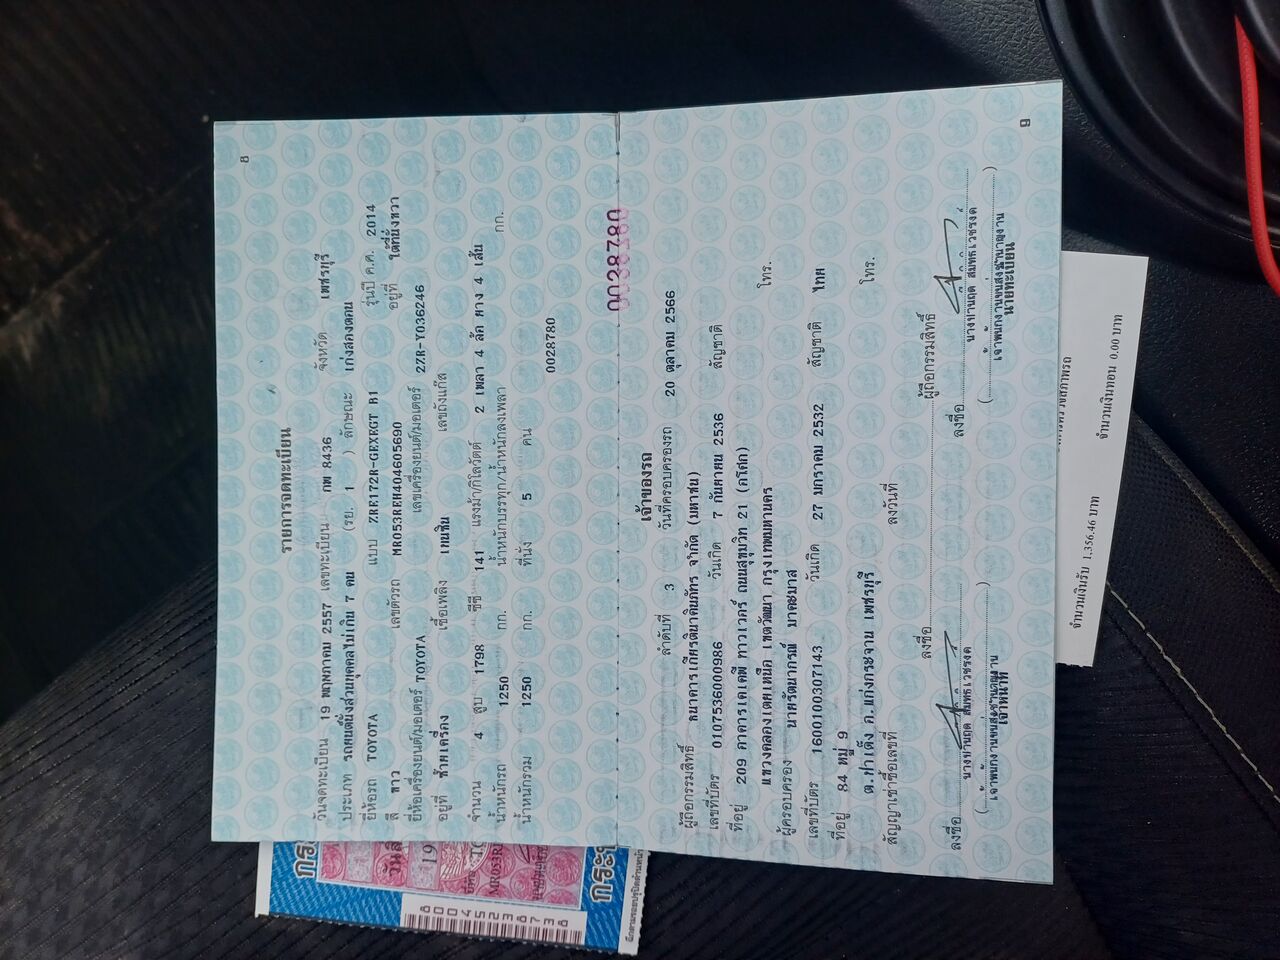 8
รายการจดทะเบียน
วันจดทะเบียน 19 พฤษภาคม 2557 เลขทะเบียน กฬ 8436 จังหวัด เพชรบุรี
ประเภท รถยนต์นั่งส่วนบุคคลไม่เกิน 7 คน (รย. 1 ) ลักษณะ เก๋งสองตอน
ยี่ห้อรถ TOYOTA แบบ ZRE172R-GEXEGT B1 รุ่นปี ค.ศ. 2014
สี ขาว เลขตัวรถ MR053REH404605690 อยู่ที่ ใต้ที่นั่งขวา
ยี่ห้อเครื่องยนต์/มอเตอร์ TOYOTA เลขเครื่องยนต์/มอเตอร์ 2ZR-Y036246
อยู่ที่ ซ้ายเครื่อง เชื้อเพลิง เบนซิน เลขถังแก๊ส
จำนวน 4 สูบ 1798 ซีซี 141 แรงม้า/กิโลวัตต์ 2 เพลา 4 ล้อ ยาง 4 เส้น
น้ำหนักรถ 1250 กก. น้ำหนักบรรทุก/น้ำหนักลงเพลา กก.
น้ำหนักรวม 1250 กก. ที่นั่ง 5 คน
0028780
0028780
เจ้าของรถ
ลำดับที่ 3 วันที่ครอบครองรถ 20 ตุลาคม 2566
ผู้ถือกรรมสิทธิ์ ธนาคารเกียรตินาคินภัทร จำกัด (มหาชน)
เลขที่บัตร 0107536000986 วันเกิด 7 กันยายน 2536 สัญชาติ
ที่อยู่ 209 อาคารเคเคพี ทาวเวอร์ ถนนสุขุมวิท 21 (อโศก)
แขวงคลองเตยเหนือ เขตวัฒนา กรุงเทพมหานคร โทร.
ผู้ครอบครอง นายรัตนากรณ์ มาตะมาส
เลขที่บัตร 1600100307143 วันเกิด 27 มกราคม 2532 สัญชาติ ไทย
ที่อยู่ 84 หมู่ 9
ต.ป่าเด็ง อ.แก่งกระจาน เพชรบุรี โทร.
สัญญาเช่าซื้อเลขที่ ลงวันที่
ลงชื่อ ผู้ถือกรรมสิทธิ์
ลงชื่อ ลงชื่อ
เจ้าพนักงานขนส่งชำนาญงาน
เจ้าหน้าที่
เจ้าพนักงานขนส่งชำนาญงาน
นายทะเบียน
9
จำนวนเงินรับ 1,356.46 บาท จำนวนเงินทอน 0.00 บาท
80045238738